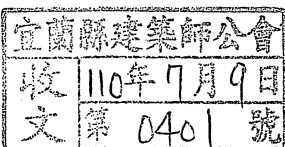 宜蘭縣建築師公會
收文
110年7月9日
第0401號